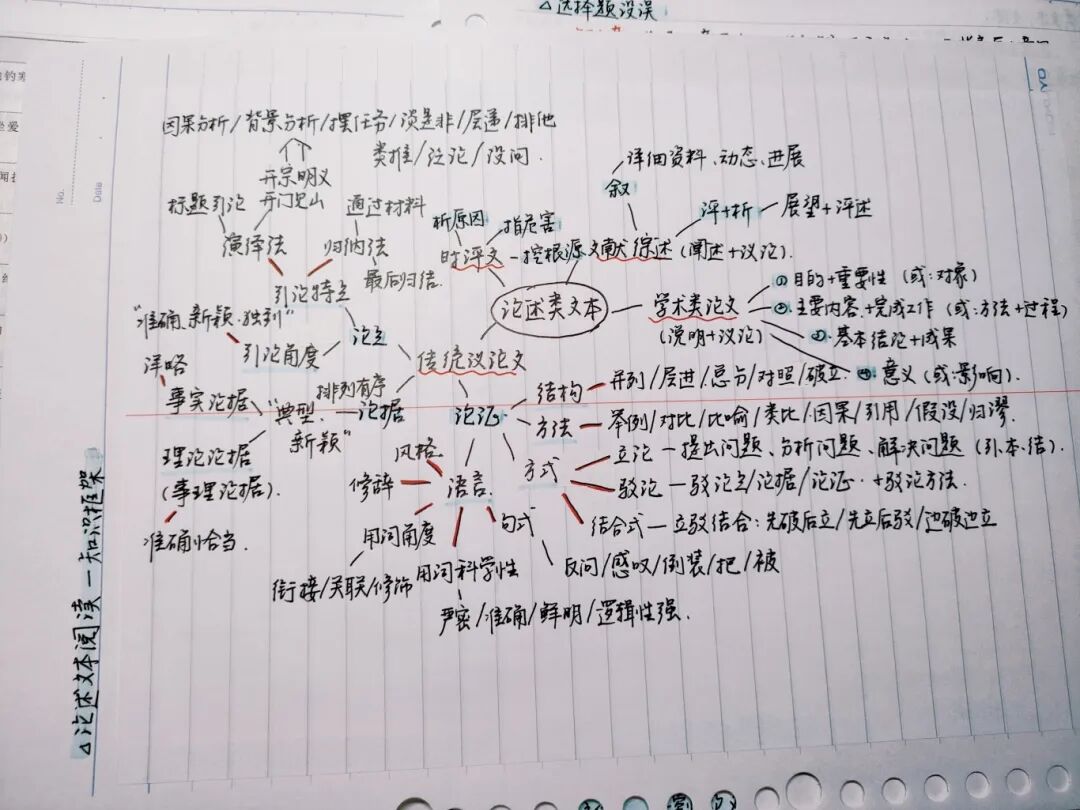 △选择题没误
No.
Date
△论述文本阅读—知识框架
因果分析/背景分析/摆任务/谈是非/层递/排他
类推/泛论/设问.
开宗明义
开门见山
标题引论
通过材料
演绎法
归纳法
最后归结.
引论特点
"准确、新颖·独到"
引论角度
论点
详略
事实论据
排列有序
"典型、
新颖"
论据
理论论据
(事理论据).
准确恰当.
传统议论文
论述类文本
时评文
析原因
指危害
挖根源
文献综述 (阐述+议论).
叙
详细资料、动态、进展
评+析
展望+评述
学术类论文
(说明+议论)
①目的+重要性 (或:对象)
②主要内容+完成工作 (或:方法+过程)
③基本结论+成果
④意义 (或:影响).
论证
结构
并列/层进/总分/对照/破立.
方法
举例/对比/比喻/类比/因果/引用/假设/归谬.
方式
立论—提出问题、分析问题、解决问题 (引、本、结).
驳论—驳论点/论据/论证.+驳论方法.
结合式—立驳结合:先破后立/先立后驳/边破边立
语言
风格
修辞
用词角度
衔接/关联/修饰
用词科学性
严密/准确/鲜明/逻辑性强.
句式
反问/感叹/倒装/把/被